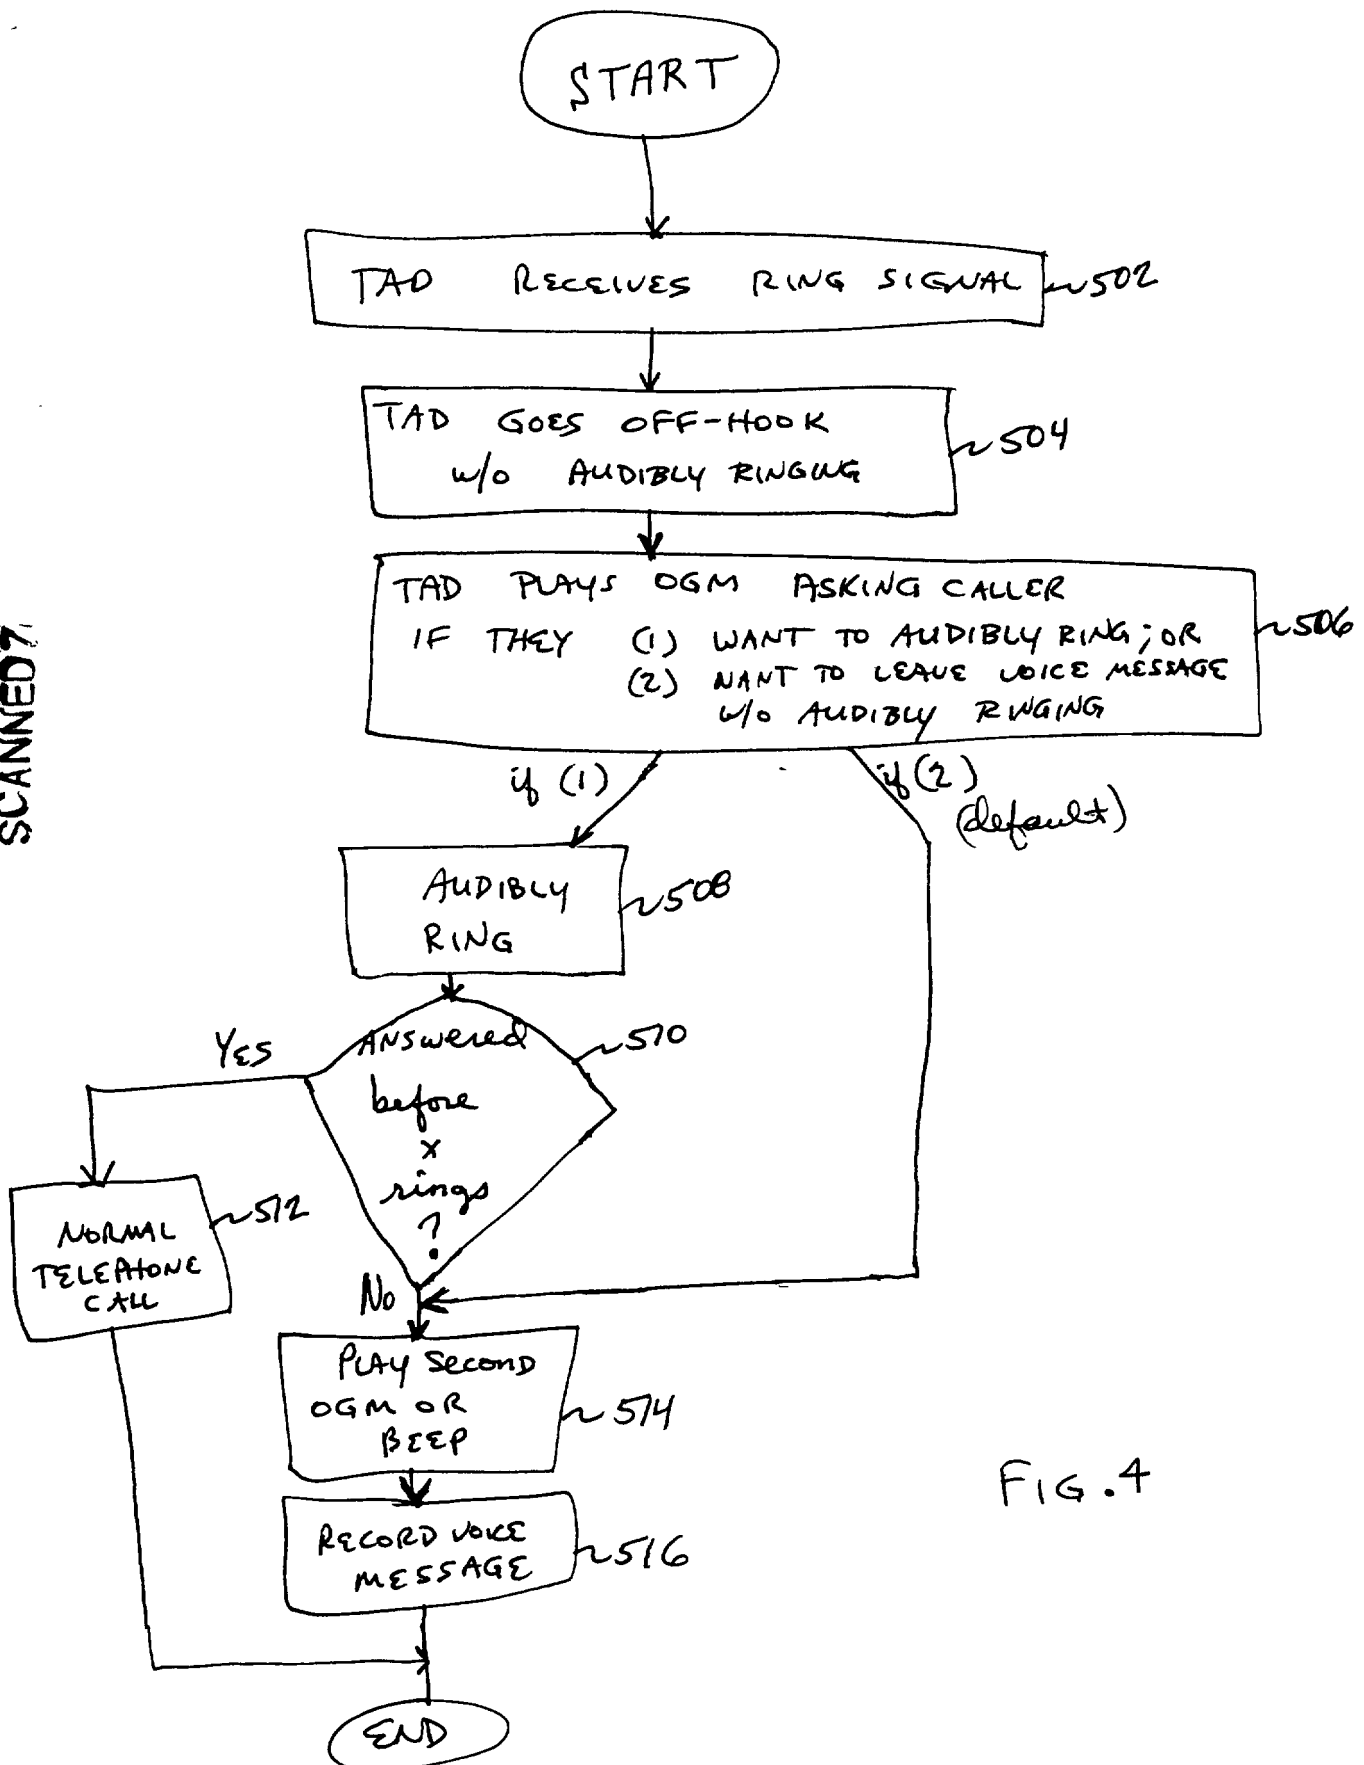 START
TAD RECEIVES RING SIGNAL
502
TAD GOES OFF-HOOK
w/o AUDIBLY RINGING
504
TAD PLAYS OGM ASKING CALLER
IF THEY (1) WANT TO AUDIBLY RING; OR
(2) WANT TO LEAVE VOICE MESSAGE
w/o AUDIBLY RINGING
506
if (1)
if (2)
(default)
AUDIBLY
RING
508
Answered
before
x
rings
?
510
YES
NORMAL
TELEPHONE
CALL
512
No
PLAY SECOND
OGM OR
BEEP
514
RECORD VOICE
MESSAGE
516
END
FIG. 4
SCANNED7